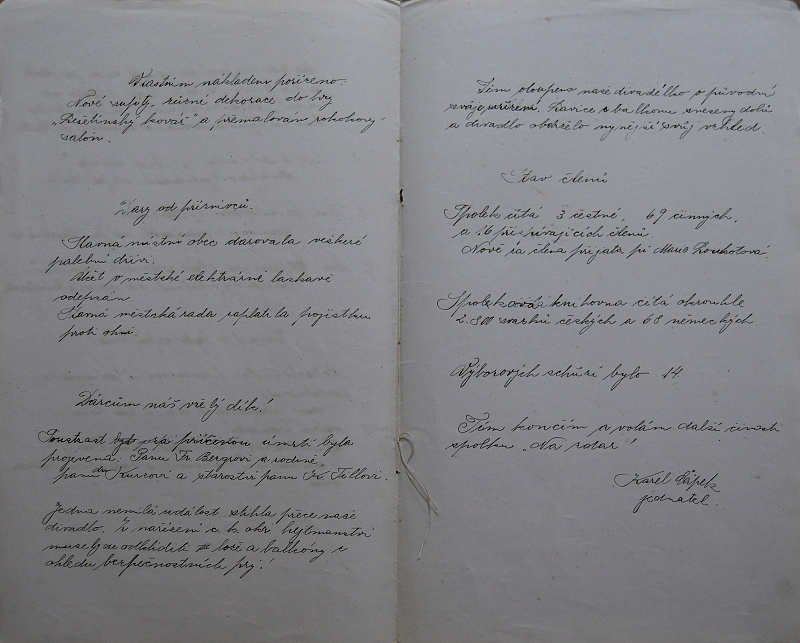 Vlastním nákladem pořízeno:
Nové sufity, různé dekorace do hry
„Lešetínský kovář" a přemalován rokokový
salón.
Dary od příznivců.
Slavná místní obec darovala veškeré
palební dříví.
Účet o městské elektrárně laskavě
odepsán.
Slavná městská rada zaplatila pojistku
proti ohni.
Dárcům náš vřelý dík!
Soustrast za příčinou úmrtí byla
projevena: Panu Fr. Bergrovi a rodině,
panu Kurcovi a starostovi panu Fr. Tillovi.
Jedna nemilá událost stihla přece naše
divadlo. Z nařízení c. k. okr. hejtmanství
musely se odkliditi lože a balkóny z
ohledu bezpečnostních prý!
Tím oloupeno naše divadélko o původní
svá zařízení. Lavice s balkonu sneseny dolů
a divadlo obdrželo nynější svůj vzhled.
Stav členů
Spolek čítá 3 čestné, 69 činných,
a 16 přispívajících členů
Nově za člena přijata pí Marie Loukotová.
Spolková knihovna čítá okrouhle
2.800 svazků českých a 68 německých
Výborových schůzí bylo 14.
Tím končím a volám další činnosti
spolku „Na zdar"!
Karel Čápek
jednatel.